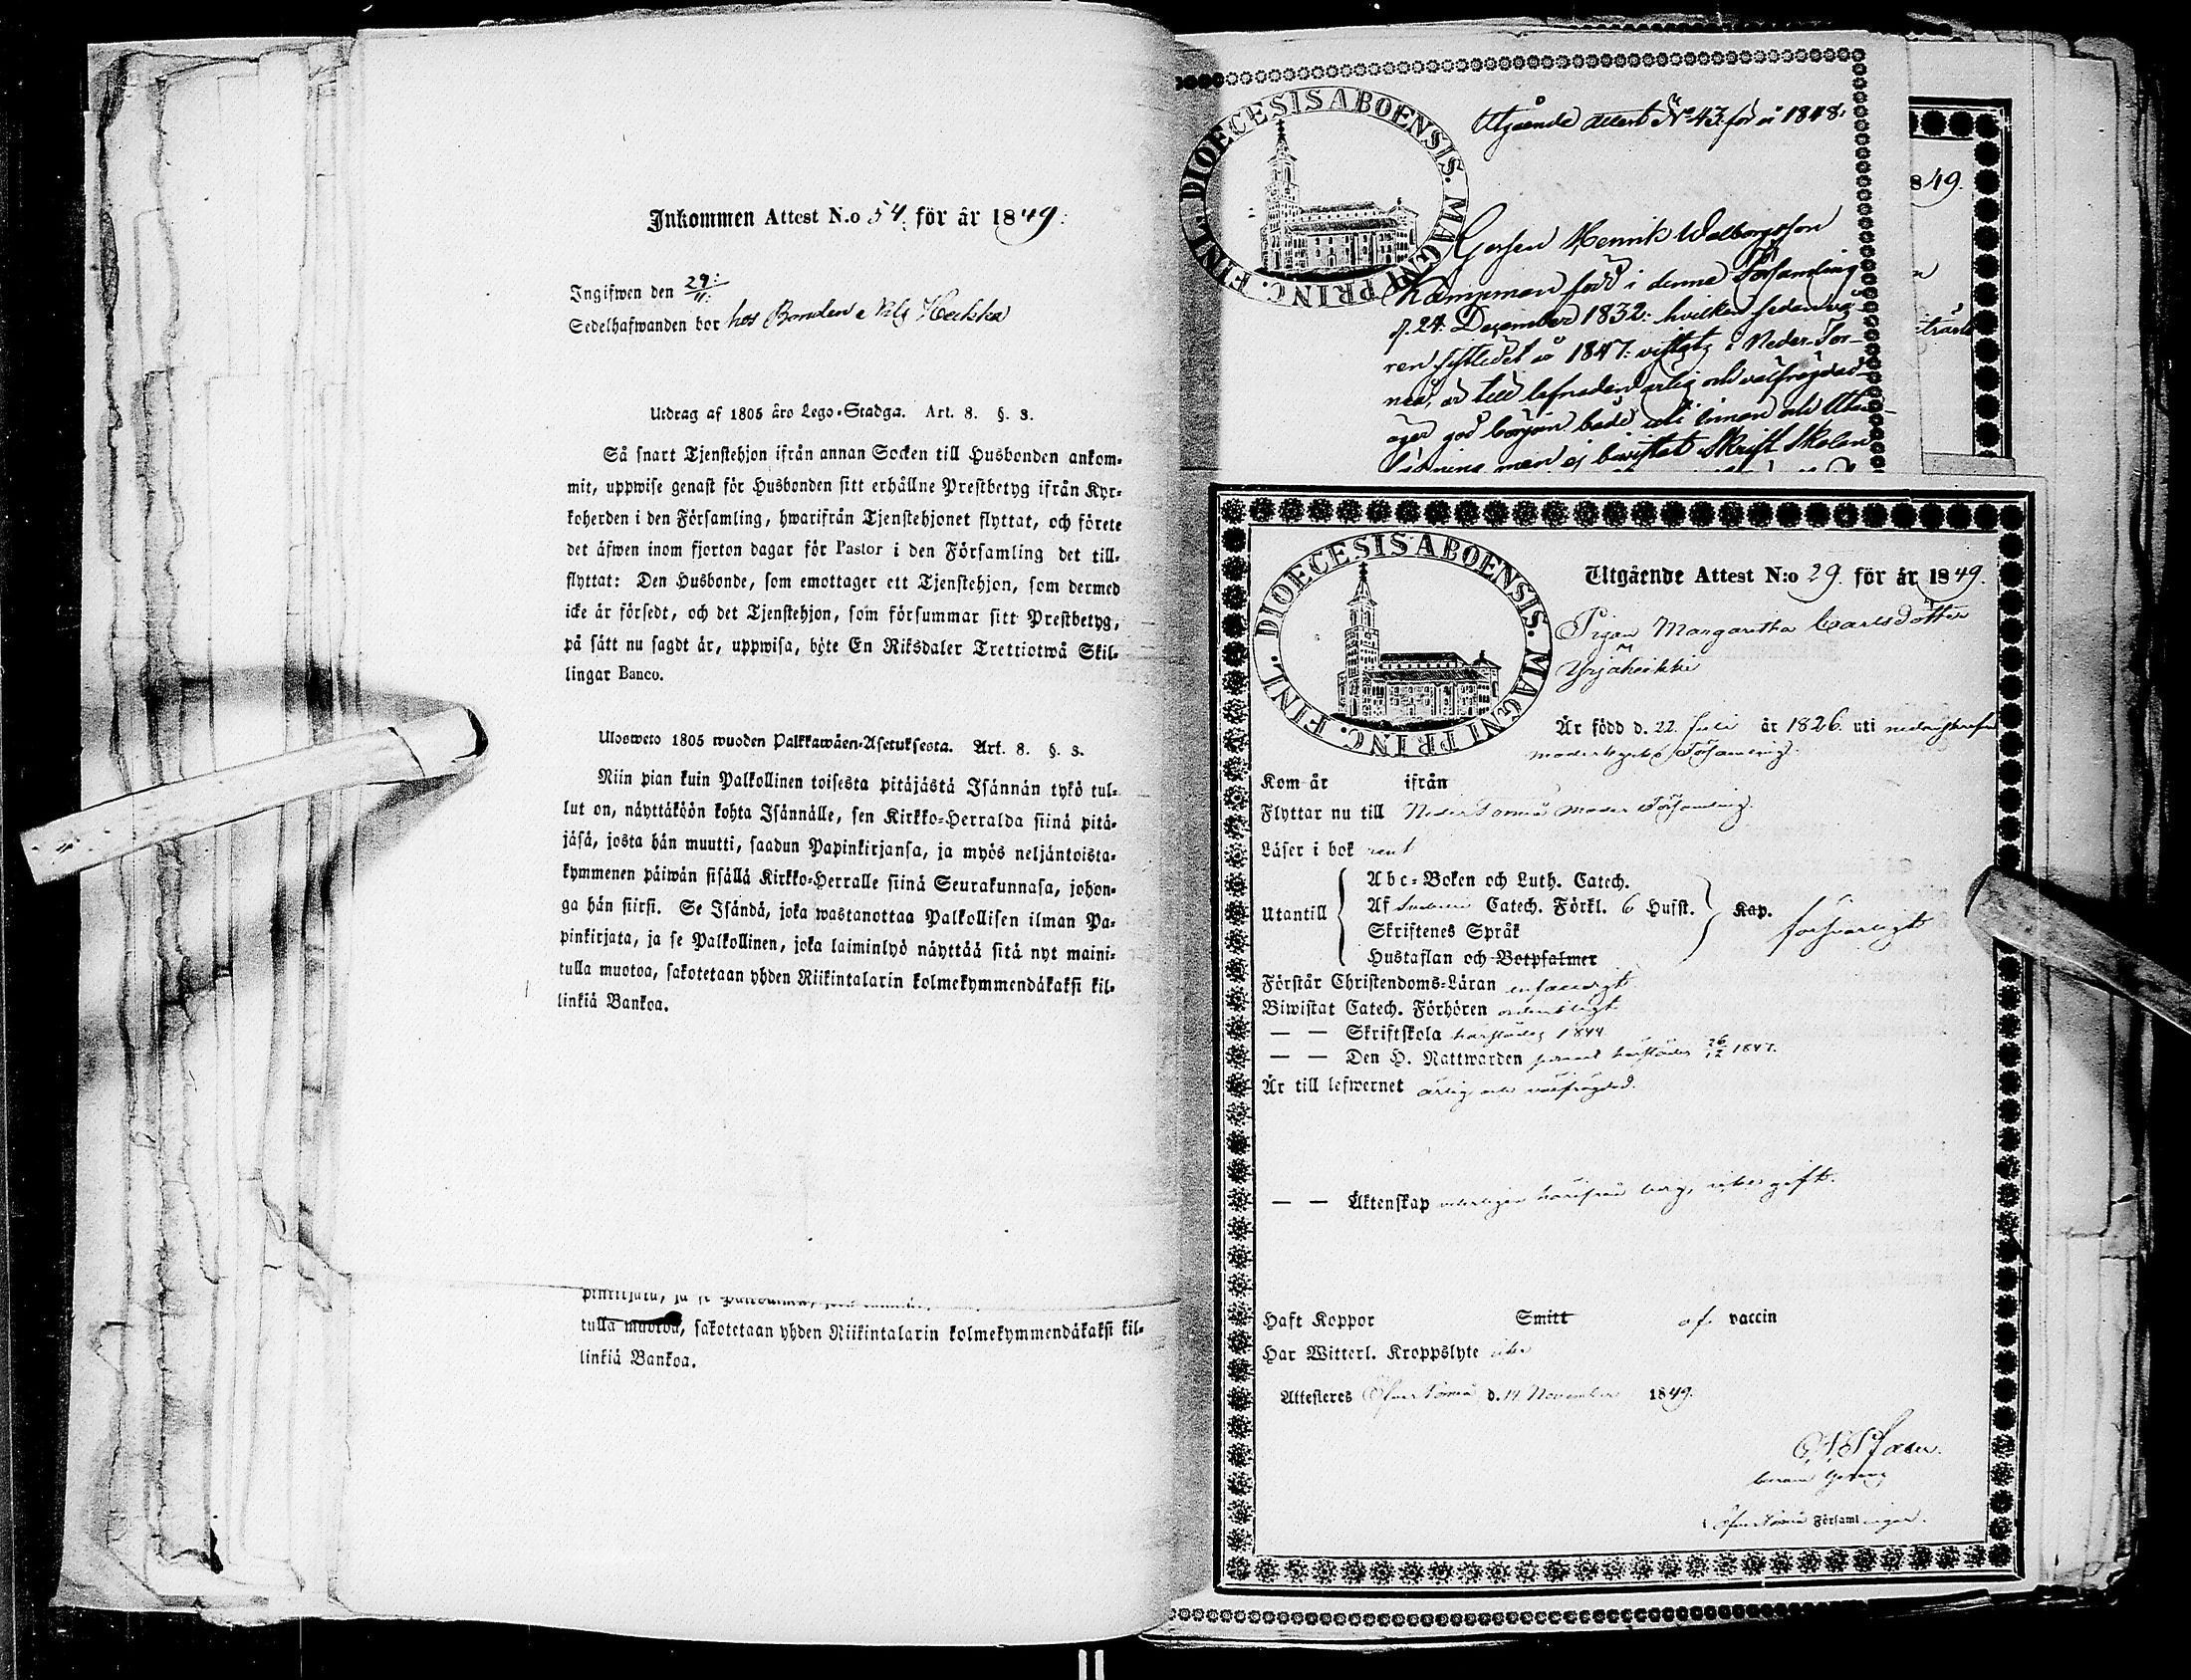 Inkommen Attest N.o 54. för år 1849.
Ingifwen den 29/11.
Sedelhafwanden bor hos Bonden Heikka
Utdrag af 1805 års Lego-Stadga. Art. 8. §. 3.
Så snart Tjenstehjon ifrån annan Socken till Husbonden ankom-
mit, uppwise genast för Husbonden sitt erhållne Prestbetyg ifrån Kyr-
koherden i den Församling, hwarifrån Tjenstehjonet flyttat, och förete
det äfwen inom fjorton dagar för Pastor i den Församling det till-
flyttat: Den Husbonde, som emottager ett Tjenstehjon, som dermed
icke är försedt, och det Tjenstehjon, som försummar sitt Prestbetyg,
på sätt nu sagdt är, uppwisa, böte En Riksdaler Trettiotwå Skil-
lingar Banco.
Ulosweto 1805 wuoden Palkkawäen-Asetuksesta. Art. 8. §. 3.
Niin pian kuin Palkollinen toisesta pitäjästä Isännän tykö tul-
lut on, näyttäköön kohta Isännälle, sen Kirkko-Herralda siinä pitä-
jäsä, josta hän muutti, saadun Papinkirjansa, ja myös neljäntoista-
kymmenen päiwän sisällä Kirkko-Herralle siinä Seurakunnasa, johon-
ga hän siirsi. Se Isändä, joka wastanottaa Palkollisen ilman Pa-
pinkirjata, ja se Palkollinen, joka laiminlyö näyttää sitä nyt maini-
tulla muotoa, sakotetaan yhden Riikintalarin kolmekymmendäkaksi kil-
linkiä Bankoa.
pinkirjata, ja se Palkollinen, joka
tulla muotoa, sakotetaan yhden Riikintalarin kolmekymmendäkaksi kil-
linkiä Bankoa.
DIOECESIS ABOENSIS. MAGNI PRINC. FINL.
Utgående attest No 43. för år 1848.
Gossen Henrik Walborgsson
Kämpeman född i denna Församling
d. 24. December 1832. hvilken sedan vå-
ren sistledet år 1847. vistats i Neder-Tor-
neå, är till lefnaden ärlig och välfrägdad
äger god början både uti innan och Utan-
Läsning men ej biwistat Skrift Skolan
849.
DIOECESIS ABOENSIS. MAGNI PRINC. FINL.
Utgående Attest N:o 29. för år 1849.
Pigan Margaretha Carlsdotter
Yrjäheikki
Är född d. 22. Juli år 1826. uti
Församling.
Kom år ifrån
Flyttar nu till Neder Torneå Moder Församling.
Läser i bok rent
Utantill
Abc-Boken och Luth. Catech.
Af Catech. Förkl. 6 Hufst. Kap. försvarligt
Skriftenes Språk
Hustaflan och Botpsalmer
Förstår Christendoms-Läran enfaldigt
Biwistat Catech. Förhören ordentligt
— — Skriftskola härstädes 1844.
— — Den H. Nattwarden härstädes 26/12 1847.
Är till lefwernet ärlig och välfrägdad.
— — Äktenskap gift.
Haft Koppor Smitt af. vaccin
Har Witterl. Kroppslyte icke
Attesteres Öfver Torneå d. 14 November 1849.
Öfver Torneå Församlingar.